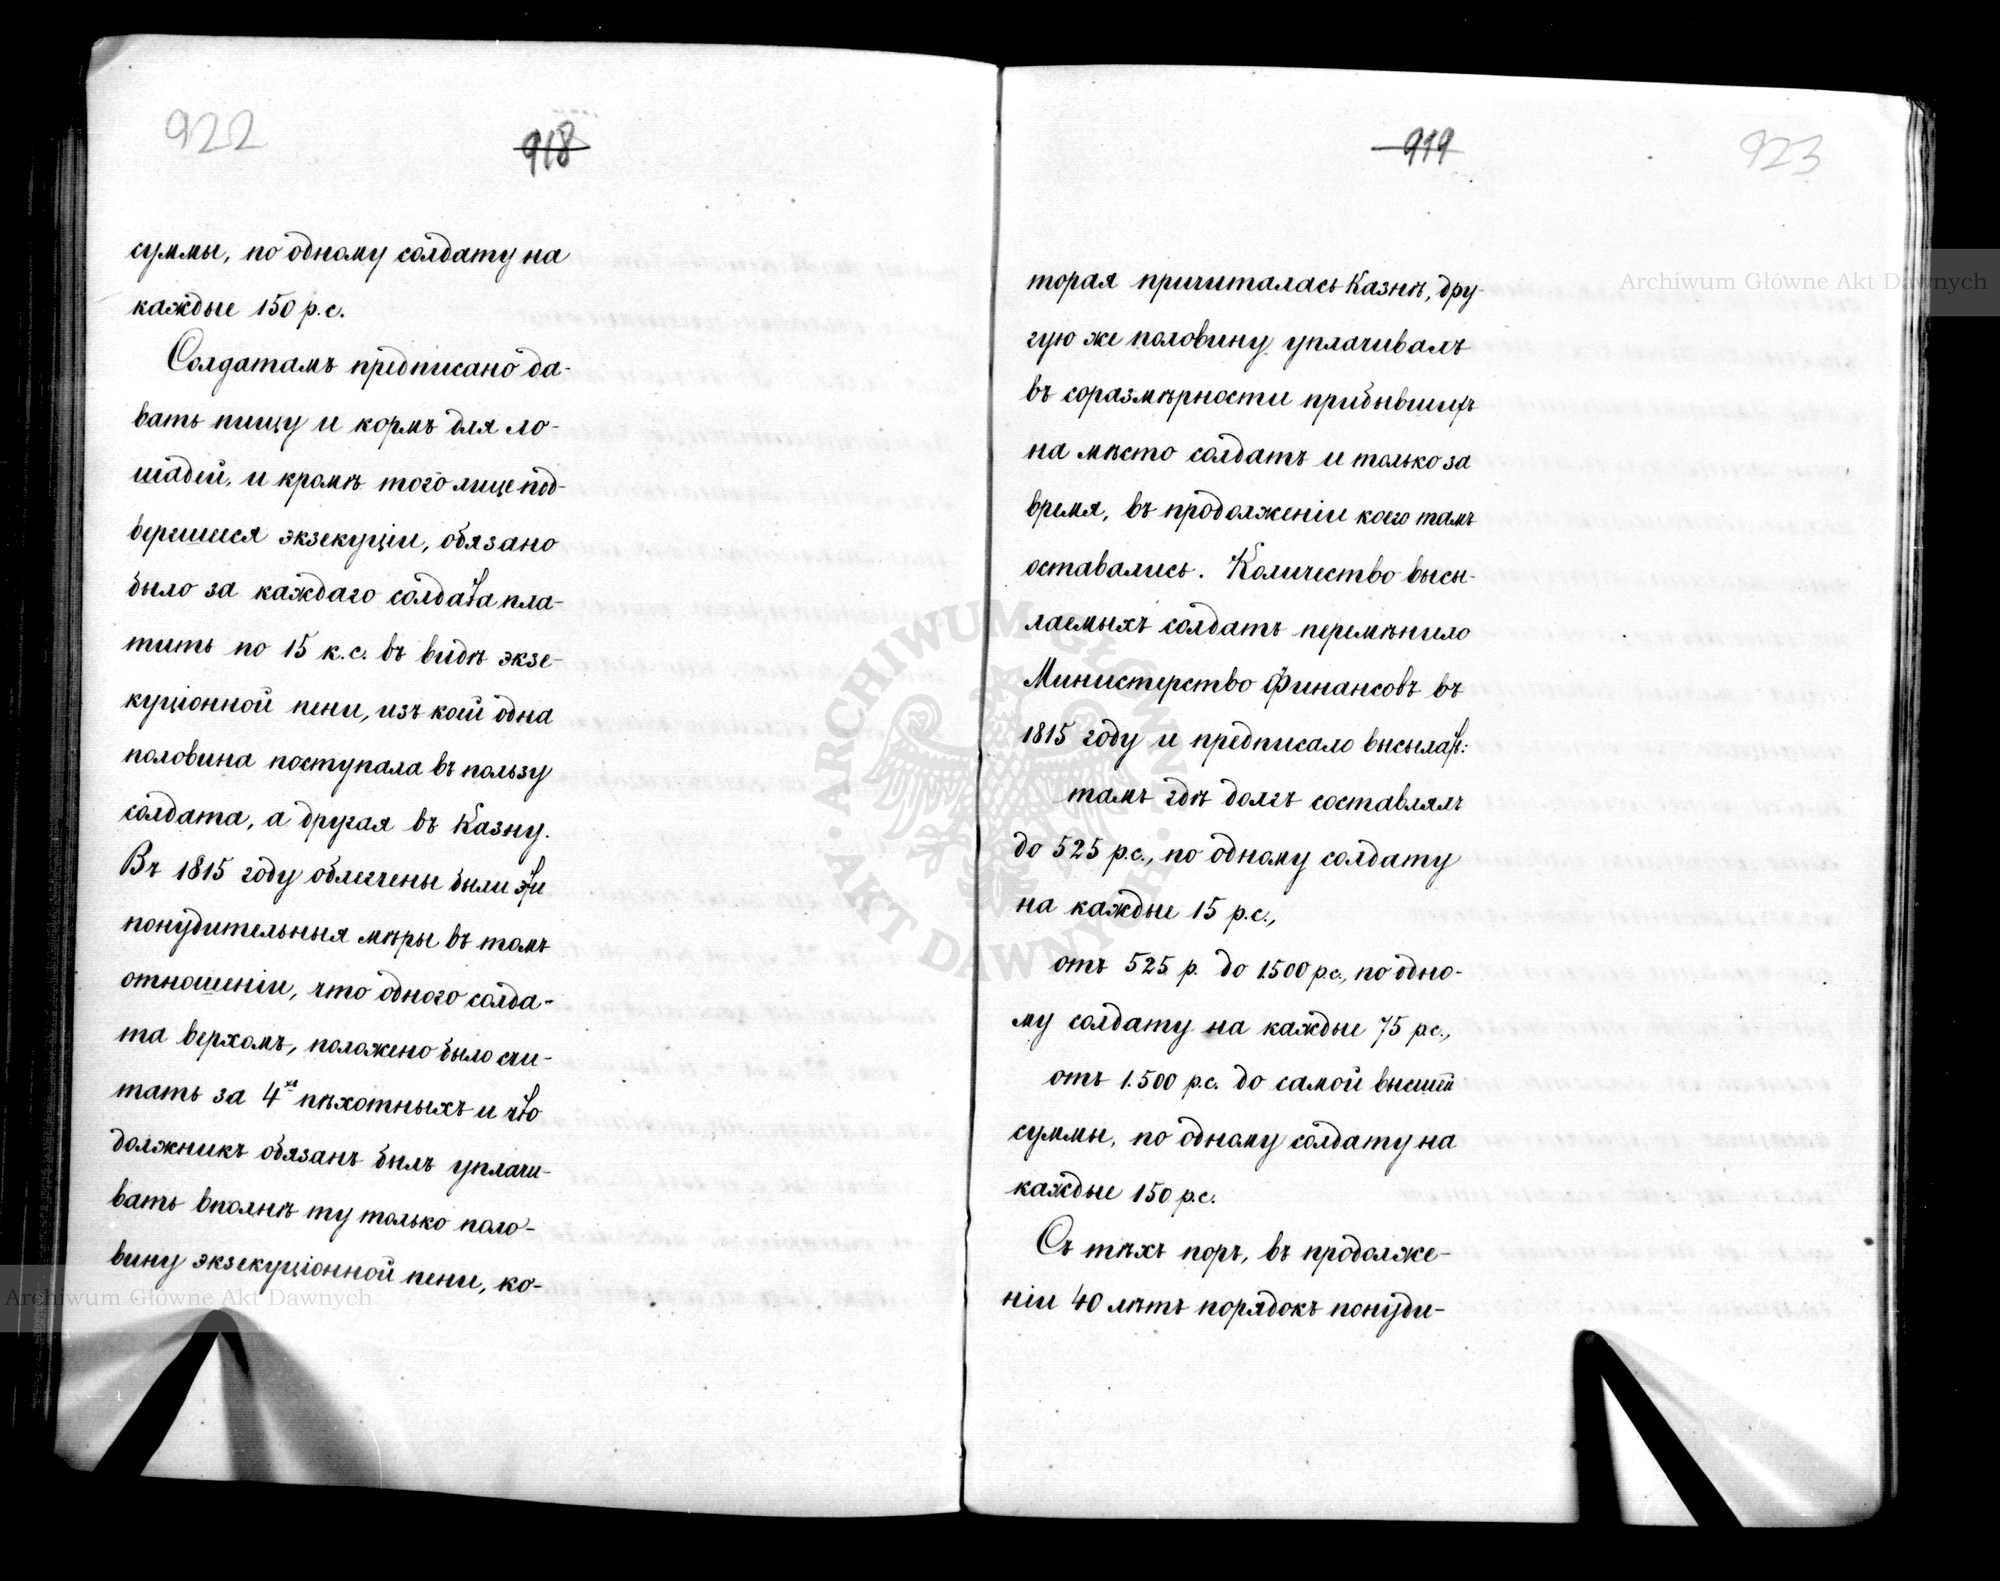 922
918
суммы, по одному солдату на
каждые 150 р.с.
Солдатамъ предписано да-
вать пищу и кормъ для ло-
шадей, и кромѣ того лице под-
вергшееся экзекуціи, обязано
было за каждаго солдата пла-
тить по 15 к.с. въ видѣ экзе-
куціонной пени, изъ коей одна
половина поступала въ пользу
солдата, а другая въ Казну.
Въ 1815 году облегчены были эти
понудительныя мѣры въ томъ
отношеніи, что одного солда-
та верхомъ, положено было счи-
тать за 4хъ пѣхотныхъ и что
должникъ обязанъ былъ уплачи-
вать вполнѣ ту только поло-
вину экзекуціонной пени, ко-
919
923
торая причиталась Казнѣ, дру-
гую же половину уплачивалъ
въ соразмѣрности прибывшихъ
на мѣсто солдатъ и только за
время, въ продолженіи коего тамъ
оставались. Количество высы-
лаемыхъ солдатъ перемѣнило
Министерство Финансовъ въ
1815 году и предписало высылать:
тамъ гдѣ долгъ составлялъ
до 525 р.с., по одному солдату
на каждые 15 р.с.,
отъ 525 р. до 1500 р.с., по одно-
му солдату на каждые 75 р.с.,
отъ 1.500 р.с. до самой высшей
суммы, по одному солдату на
каждые 150 р.с.
Съ тѣхъ поръ, въ продолже-
ніи 40 лѣтъ порядокъ понуди-
Archiwum Główne Akt Dawnych
Archiwum Główne Akt Dawnych
ARCHIWUM GŁÓWNE · AKT DAWNYCH ·